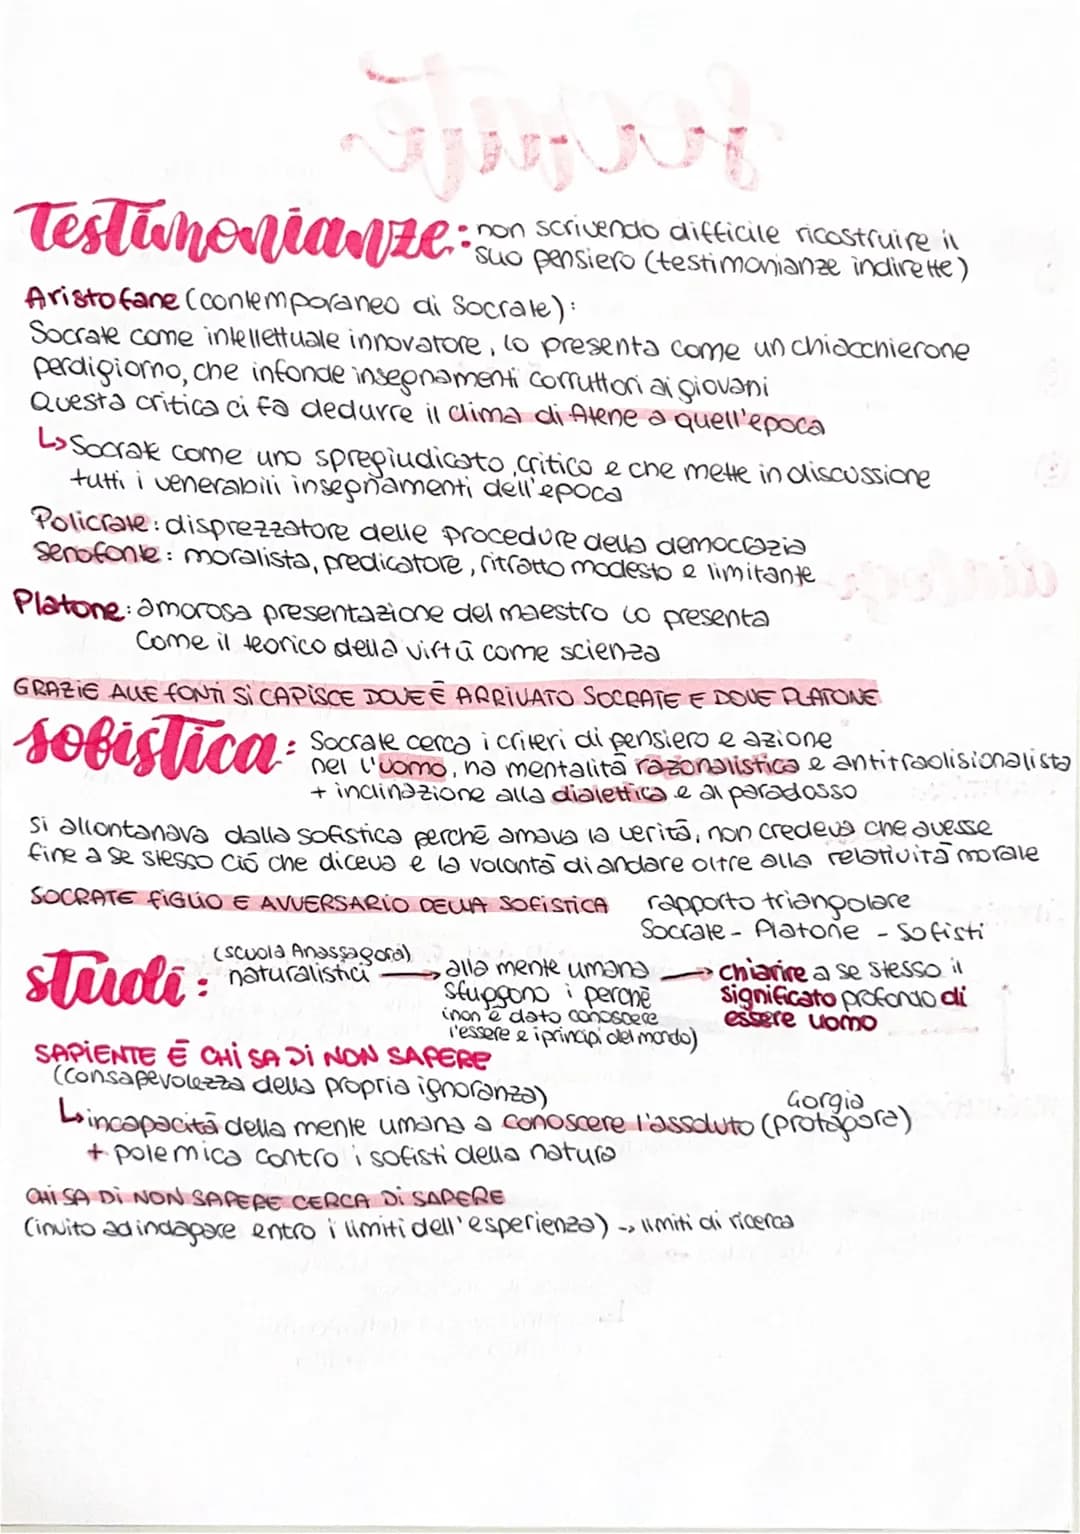 Testimonianze: non scrivendo difficile ricostruire il
suo pensiero (testimonianze indirette)
Aristofane (contemporaneo di Socrate):
Socrate come intellettuale innovatore, lo presenta come un chiacchierone
perdigiorno, che infonde insegnamenti corruttori ai giovani
Questa critica ci fa dedurre il clima di Atene a quell'epoca
↳ Socrate come uno spregiudicato, critico e che mette in discussione
tutti i venerabili insegnamenti dell'epoca
Policrate: disprezzatore delle procedure della democrazia
Senofonte: moralista, predicatore, ritratto modesto e limitante
Platone: amorosa presentazione del maestro lo presenta
come il teorico della virtù come scienza
GRAZIE ALLE FONTI SI CAPISCE DOVE È ARRIVATO SOCRATE E DOVE PLATONE
sofistica: Socrate cerca i criteri di pensiero e azione
nel l'uomo, ha mentalità razonalistica e antitraolisionalista
+ inclinazione alla dialettica e al paradosso
Si allontanava dalla sofistica perchè amava la verità, non credeva che avesse
fine a se stesso ciò che diceva e la volontà di andare oltre alla relatività morale
SOCRATE FIGLIO E AVVERSARIO DELLA SOFISTICA rapporto triangolare
Socrate - Platone - Sofisti
studi: (scuola Anassagora) naturalistici → alla mente umana → chiarire a se stesso il
sfuggono i perchè significato profondo di
(non è dato conoscere essere uomo
l'essere e i principi del mondo)
SAPIENTE È CHI SA DI NON SAPERE
(consapevolezza della propria ignoranza)
Gorgia
↳ incapacità della mente umana a conoscere l'assoluto (protagora)
+ polemica contro i sofisti della natura
CHI SA DI NON SAPERE CERCA DI SAPERE
(invito ad indagare entro i limiti dell'esperienza) → limiti di ricerca